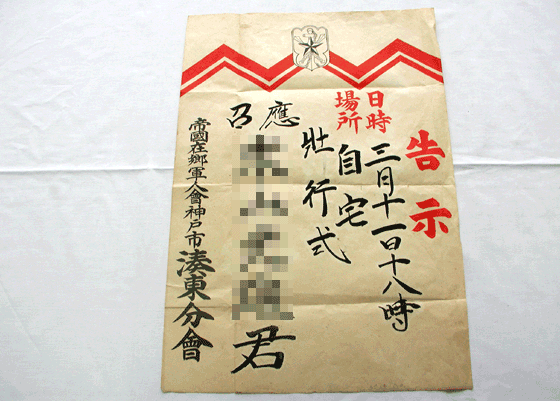 告示
日時 三月十一日十八時
場所 自宅
壯行式
應召 君
帝國在鄉軍人會神戶市湊東分會